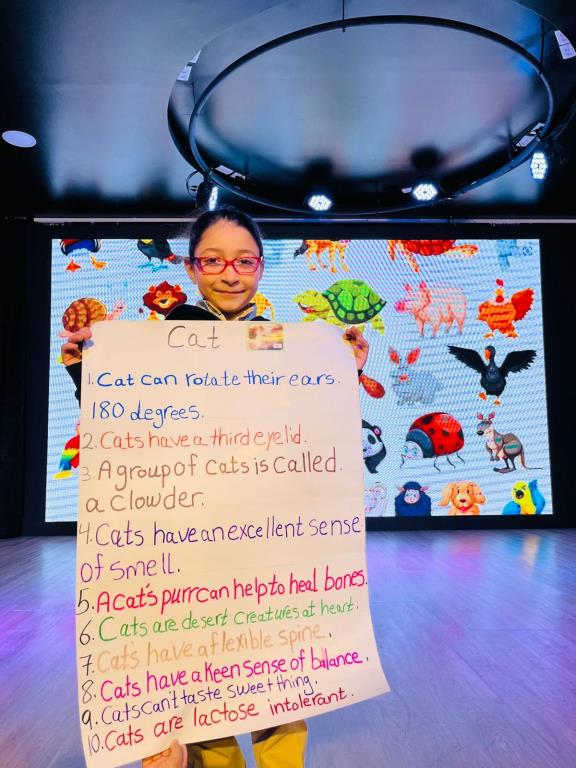 Cat
1. Cat can rotate their ears.
180 degrees.
2. Cats have a third eyelid.
3. A group of cats is called.
a clowder.
4. Cats have an excellent sense
of smell.
5. A cat's purr can help to heal bones.
6. Cats are desert creatures at heart.
7. Cats have a flexible spine.
8. Cats have a keen sense of balance.
9. Cats can't taste sweet thing.
10. Cats are lactose intolerant.